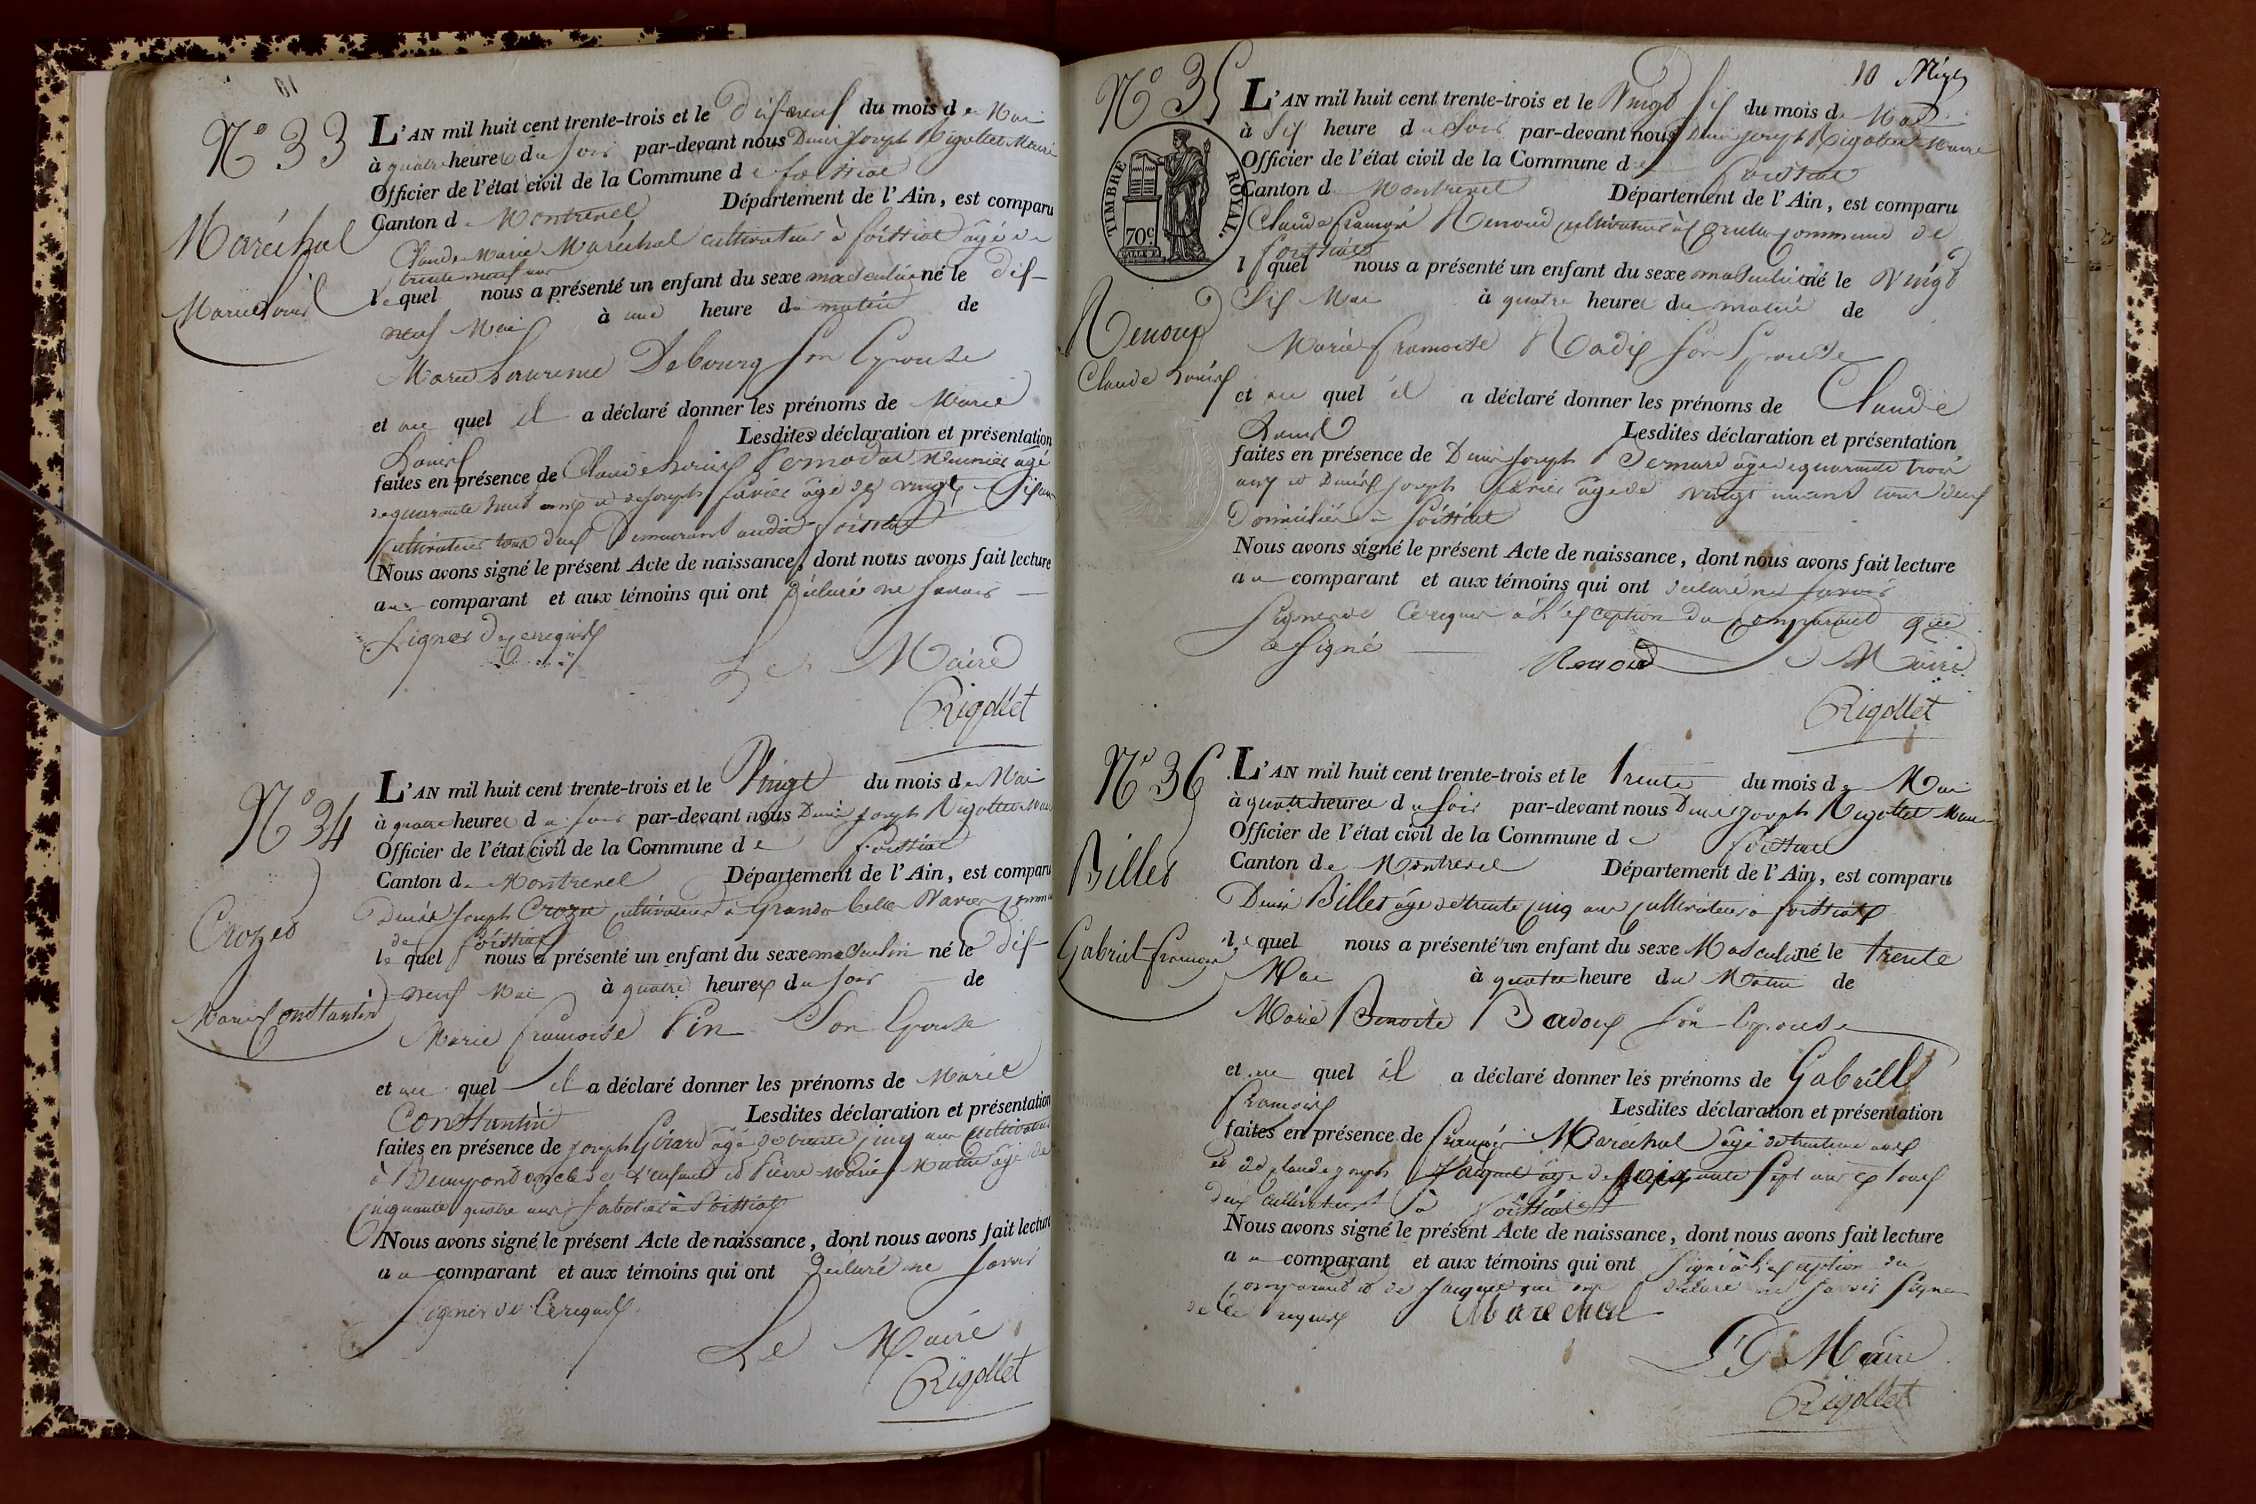 N° 33
Maréchal
Marie Louis
L'AN mil huit cent trente-trois et le Dixneuf du mois de Mai
à quatre heures du soir par-devant nous Denis Joseph Rigollet Maire
Officier de l'état civil de la Commune de foissiat
Canton de Montrevel Département de l'Ain, est comparu
Claude Marie Maréchal cultivateur à foissiat âgé de
trente neuf ans
lequel nous a présenté un enfant du sexe masculin né le dix-
neuf Mai à une heure du matin de
Marie Laurence Debourg son Epouse
et au quel il a déclaré donner les prénoms de Marie
Louis Lesdites déclaration et présentation
faites en présence de Claude Louis âgé
de quarante huit ans et de Joseph favier âgé de vingt six ans
cultivateurs tous deux Demeurant audit foissiat
Nous avons signé le présent Acte de naissance, dont nous avons fait lecture
aux comparant et aux témoins qui ont déclaré ne savoir
signer de ce requis
Le Maire
Rigollet
N° 34
Crozet
Marie Constantin
L'AN mil huit cent trente-trois et le Vingt du mois de Mai
à quatre heures du soir par-devant nous Denis Joseph Rigollet Maire
Officier de l'état civil de la Commune de foissiat
Canton de Montrevel Département de l'Ain, est comparu
Denis Joseph Crozet cultivateur à commune
de foissiat
lequel nous a présenté un enfant du sexe masculin né le Dix-
neuf Mai à quatre heures du soir de
Marie françoise Pin Son Epouse
et au quel il a déclaré donner les prénoms de Marie
Constantin Lesdites déclaration et présentation
faites en présence de Joseph âgé de trente cinq ans cultivateur
à Beaupont oncle de l'enfant et Pierre Marie âgé de
cinquante quatre ans sabotier à foissiat
Nous avons signé le présent Acte de naissance, dont nous avons fait lecture
au comparant et aux témoins qui ont déclaré ne savoir
signer de ce requis
Le Maire
Rigollet
10
N° 35
TIMBRE ROYAL.
70c
Renoud
Claude Louis
L'AN mil huit cent trente-trois et le Vingt Six du mois de Mai
à six heure du soir par-devant nous Denis Joseph Rigollet Maire
Officier de l'état civil de la Commune de foissiat
Canton de Montrevel Département de l'Ain, est comparu
Claude françois Renoud cultivateur à commune de
foissiat
lequel nous a présenté un enfant du sexe masculin né le Vingt
Six Mai à quatre heures du matin de
Marie françoise Nadix son Epouse
et au quel il a déclaré donner les prénoms de Claude
Louis Lesdites déclaration et présentation
faites en présence de Denis Joseph âgé de quarante trois
ans et Denis Joseph favier âgé de vingt tous deux
Domiciliés à foissiat
Nous avons signé le présent Acte de naissance, dont nous avons fait lecture
au comparant et aux témoins qui ont déclaré ne savoir
signer de ce requis à l'exception du comparant qui
a signé
Renoud
Le Maire
Rigollet
N° 36
Billet
Gabriel françois
L'AN mil huit cent trente-trois et le trente du mois de Mai
à quatre heures du soir par-devant nous Denis Joseph Rigollet Maire
Officier de l'état civil de la Commune de foissiat
Canton de Montrevel Département de l'Ain, est comparu
Denis Billet âgé de trente cinq ans cultivateur à foissiat
lequel nous a présenté un enfant du sexe Masculin né le trente
Mai à quatre heure du Matin de
Marie Benoite Badoux son Epouse
et au quel il a déclaré donner les prénoms de Gabriell
françois Lesdites déclaration et présentation
faites en présence de françois Maréchal âgé de
et de Claude Joseph âgé de soixante sept ans tous
deux cultivateurs à foissiat
Nous avons signé le présent Acte de naissance, dont nous avons fait lecture
au comparant et aux témoins qui ont signé à l'exception du
comparant et de qui ont déclaré ne savoir signer
de ce requis
Marechal
Le Maire
Rigollet